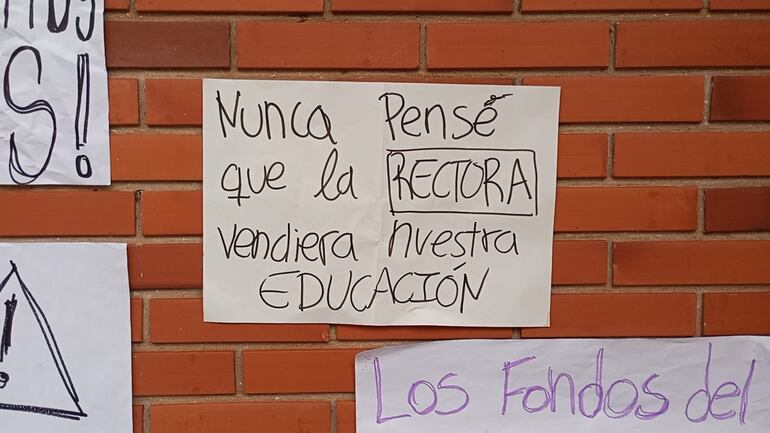 S!
Nunca Pensé
que la RECTORA
vendiera nuestra
EDUCACIÓN
!
Los Fondos del